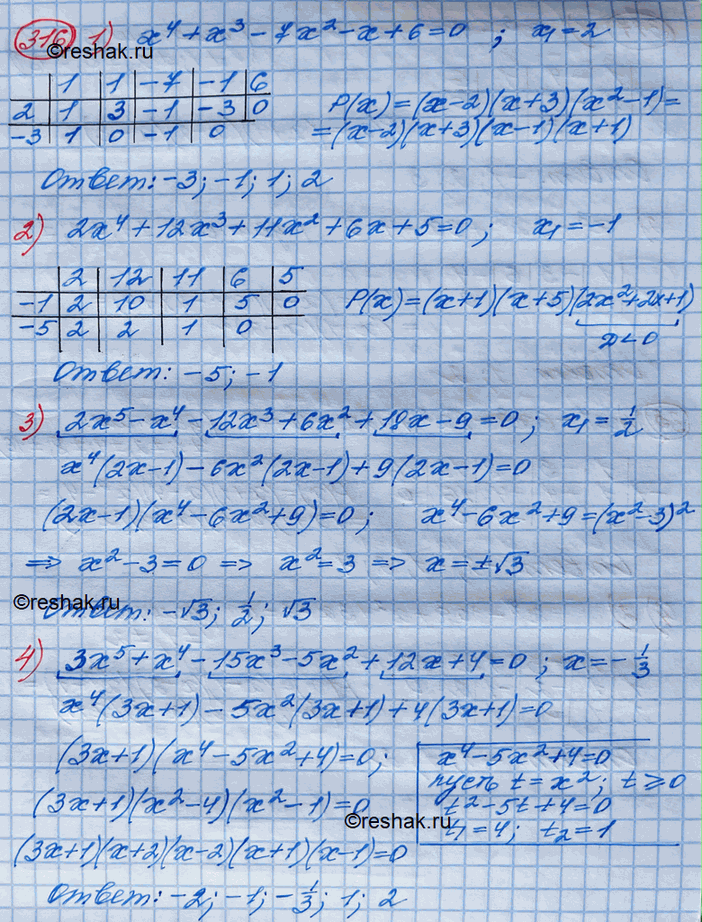 316 1) x⁴ + x³ - 7x² - x + 6 = 0 ; x₁ = 2
©reshak.ru
1 1 -7 -1 6
2 1 3 -1 -3 0
-3 1 0 -1 0
P(x) = (x-2)(x+3)(x²-1) =
= (x-2)(x+3)(x-1)(x+1)
Ответ: -3; -1; 1; 2
2) 2x⁴ + 12x³ + 11x² + 6x + 5 = 0 ; x₁ = -1
2 12 11 6 5
-1 2 10 1 5 0
-5 2 2 1 0
P(x) = (x+1)(x+5)(2x²+2x+1)
D < 0
Ответ: -5; -1
3) 2x⁵ - x⁴ - 12x³ + 6x² + 18x - 9 = 0 ; x₁ = 1/2
x⁴(2x-1) - 6x²(2x-1) + 9(2x-1) = 0
(2x-1)(x⁴ - 6x² + 9) = 0 ; x⁴ - 6x² + 9 = (x² - 3)²
⇒ x² - 3 = 0 ⇒ x² = 3 ⇒ x = ±√3
©reshak.ru
Ответ: -√3; 1/2; √3
4) 3x⁵ + x⁴ - 15x³ - 5x² + 12x + 4 = 0 ; x = -1/3
x⁴(3x+1) - 5x²(3x+1) + 4(3x+1) = 0
(3x+1)(x⁴ - 5x² + 4) = 0 ;
(3x+1)(x²-4)(x²-1) = 0
(3x+1)(x+2)(x-2)(x+1)(x-1) = 0
x⁴ - 5x² + 4 = 0
пусть t = x² ; t ≥ 0
t² - 5t + 4 = 0
t₁ = 4 ; t₂ = 1
©reshak.ru
Ответ: -2; -1; -1/3; 1; 2